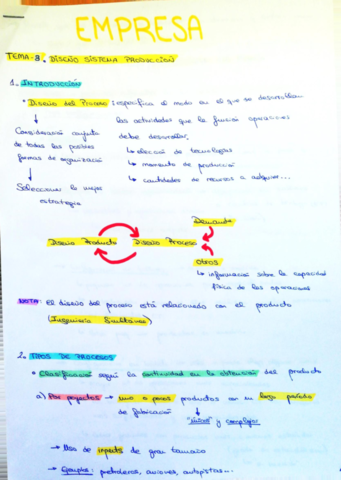 EMPRESA
TEMA-3. DISEÑO SISTEMA PRODUCCIÓN
1. INTRODUCCIÓN
• Diseño del Proceso: especifica el modo en el que se desarrollan
las actividades que la función operaciones
debe desarrollar.
Consideración conjunta
de todas las posibles
formas de organización
↳ elección de tecnologías
↳ momento de producción
↳ cantidades de recursos a adquirir...
Seleccionar la mejor
estrategia
Demanda
Diseño Producto Diseño Proceso
otros
↳ información sobre la capacidad
física de las operaciones
NOTA: El diseño del proceso está relacionado con el producto
(Ingeniería Simultánea)
2. TIPOS DE PROCESOS
• Clasificación según la continuidad en la obtención del producto
a) Por proyectos → uno o pocos productos con un largo período
de fabricación
"únicos" y complejos
→ Uso de inputs de gran tamaño
→ Ejemplos: petroleros, aviones, autopistas...